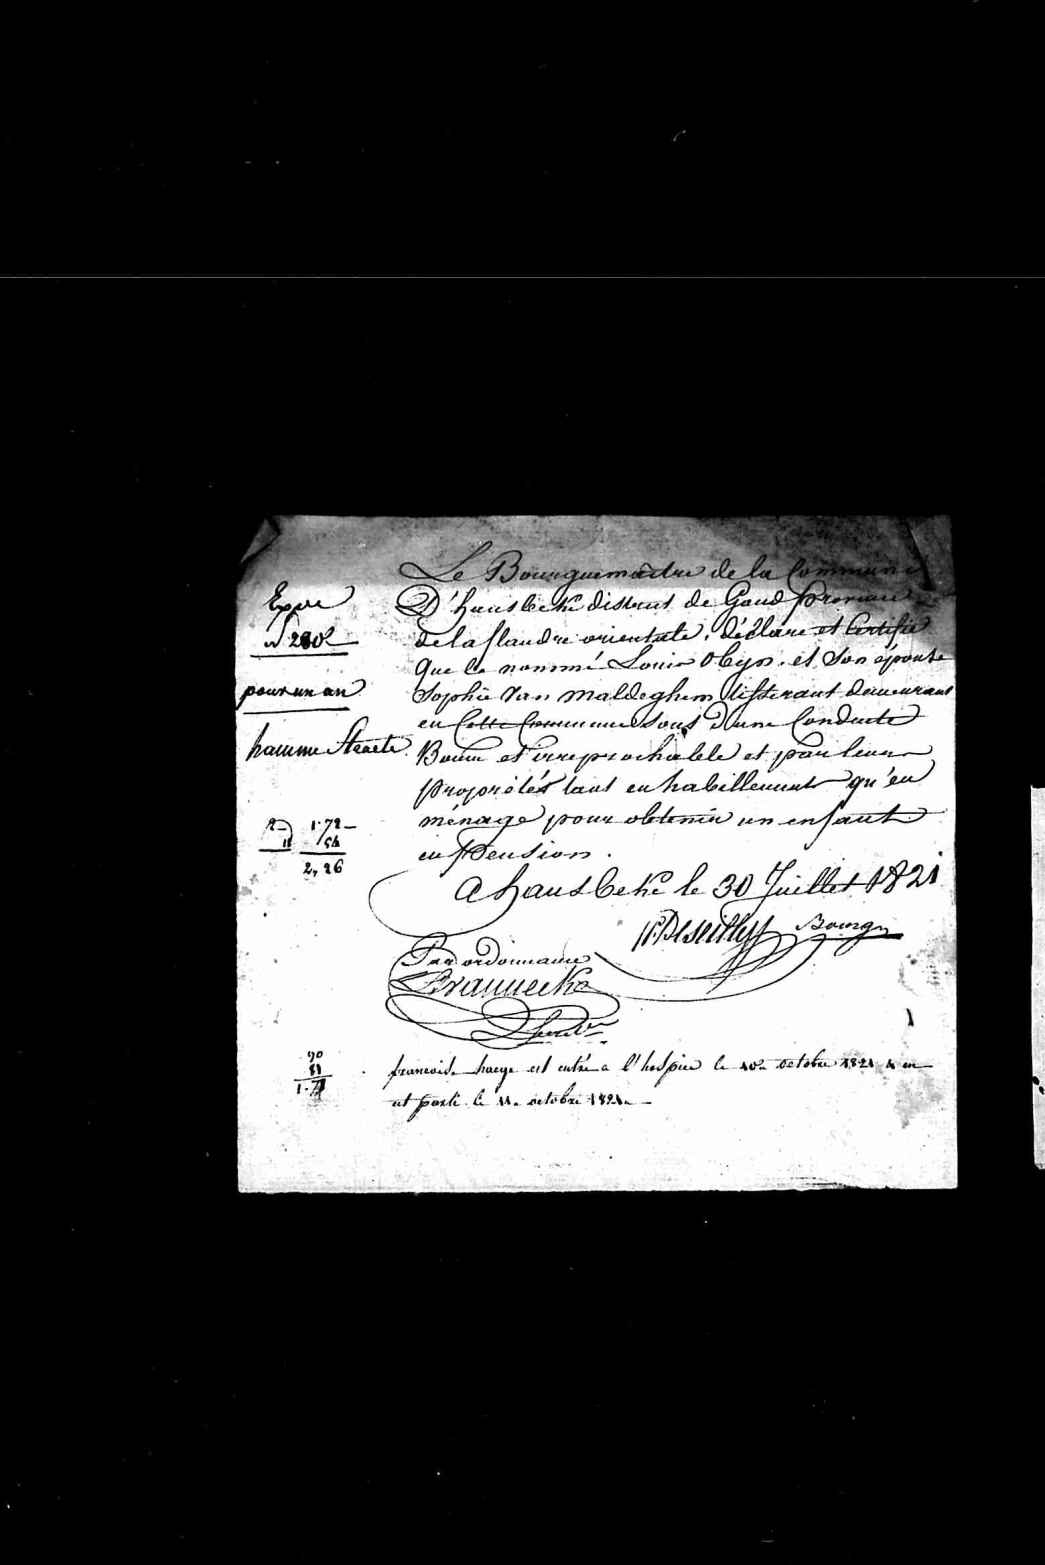 Le Bourguemaitre de la Commune
D'hansbeke district de Gand province
de la flandre orientale, déclare et Certifie
Que le nommé Louis Obyn et Son épouse
Sophie Van Maldeghem tisserant demeurant
en Cette Commune Sont D'une Conduite
Bonne et irreprochable et par leur
propretés tant en habillement qu'en
ménage pour obtenir un enfant
en Pension.
a hansbeke le 30 Juillet 1821
Bourg
Par ordonnance
Expre
pour un an
hamme Straete
1.72
54
2,26
90
81
francois haeye est entré a l'hospice le 10 octobre 1821 & en
est parti le 11 octobre 1821